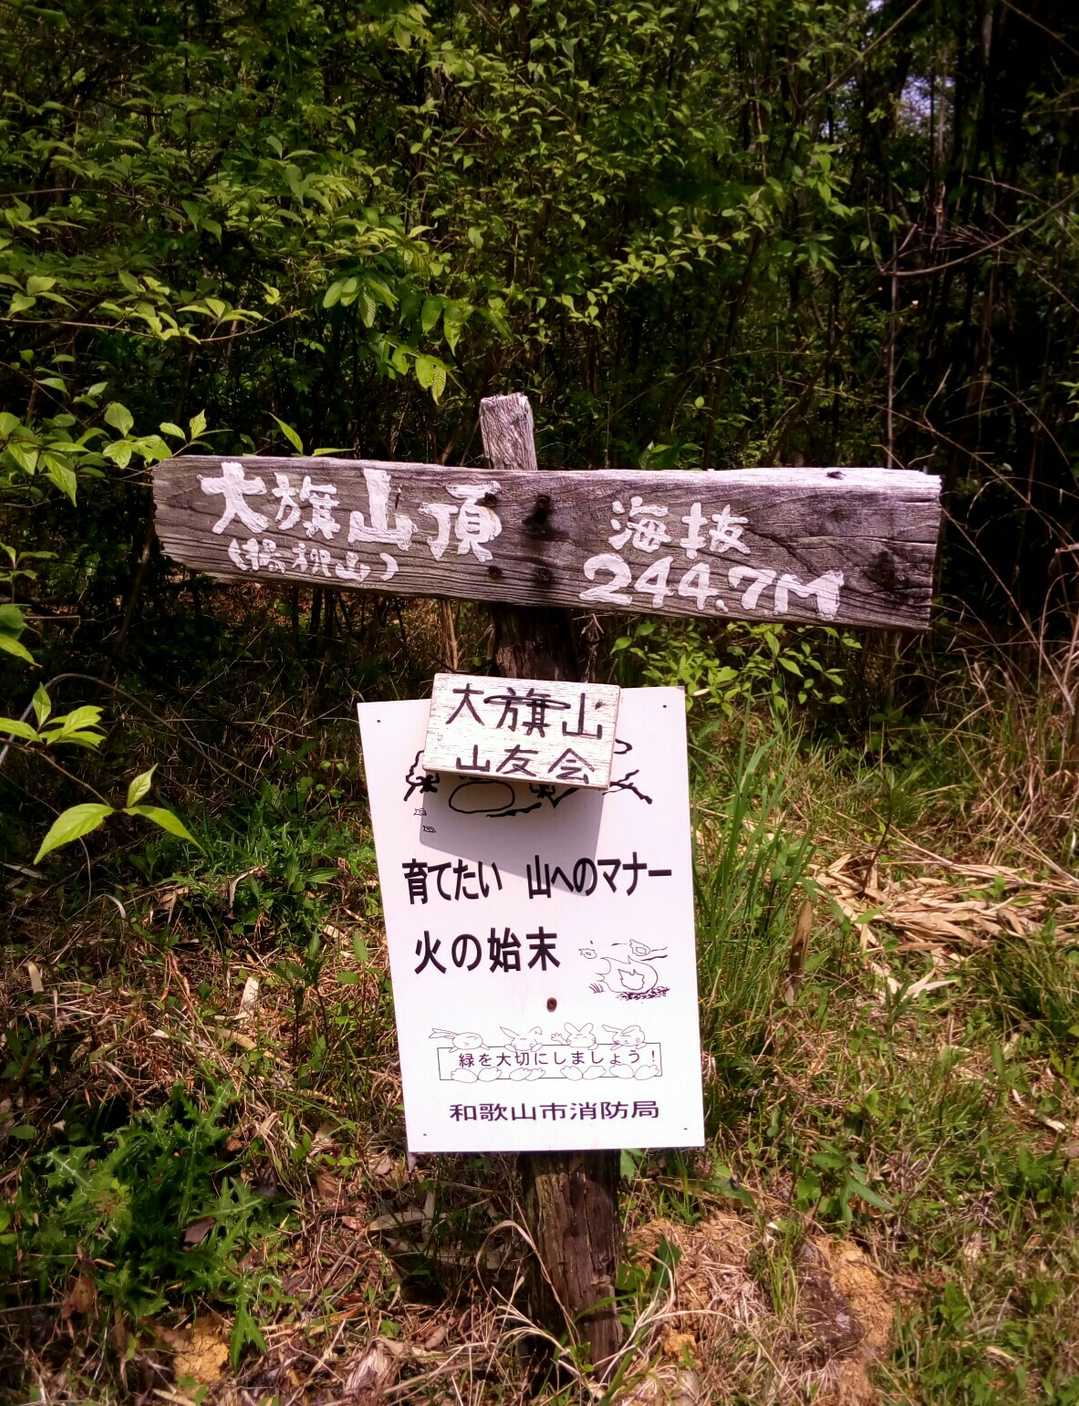 大旗山頂
海抜
244.7M
大旗山
山友会
育てたい 山へのマナー
火の始末
緑を大切にしましょう!
和歌山市消防局